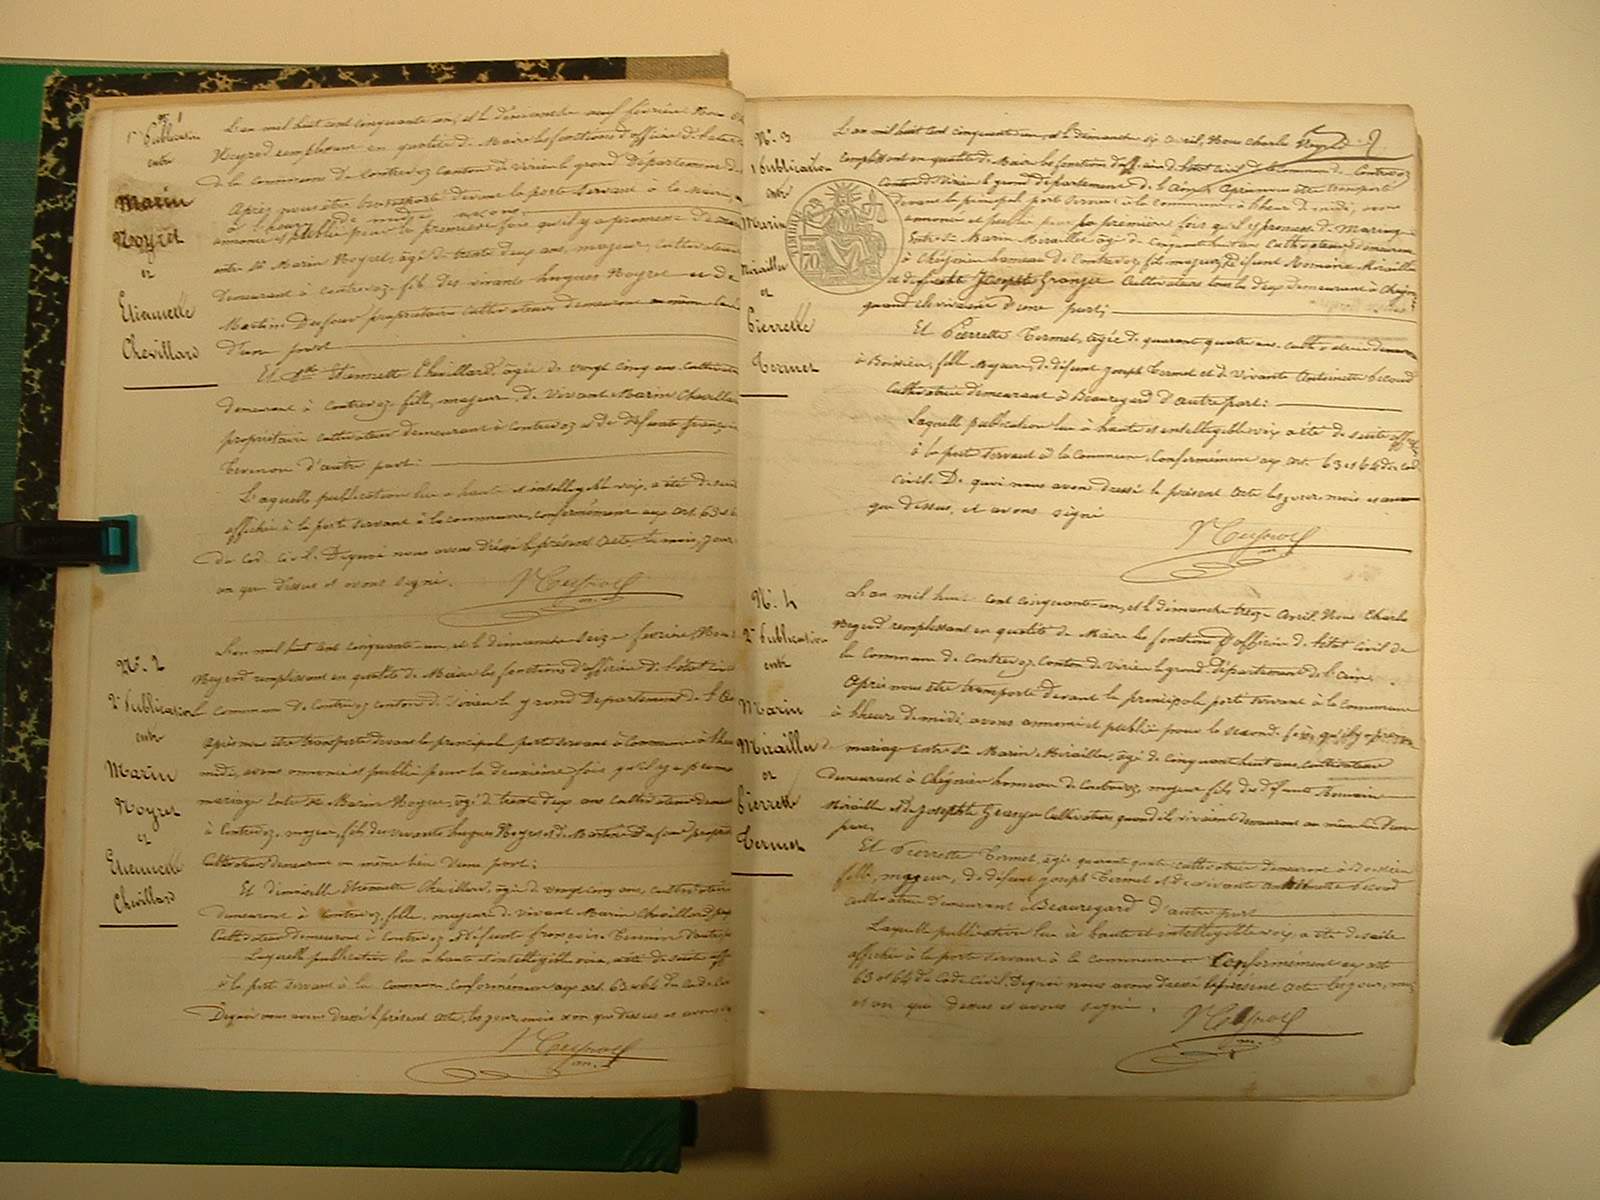 1re Publication
entre
Marin
Noyret
et
Etiennette
Chevillard
L'an mil huit cent cinquante un, et le dimanche neuf février Nous
remplissant en qualité de Maire les fonctions d'officier de l'état
de la commune de Contrevoz canton de virieu le grand Département de
Après nous être transporté devant la porte servant à la
à l'heure de midi avons
annoncé et publié pour la première fois qu'il y a promesse de
entre Sr Marin Noyret, âgé de trente deux ans, majeur, cultivateur
demeurant à contrevoz, fils des vivants hugues Noyret et de
Martine Dufour propriétaire cultivateurs demeurant au même lieu
d'une part
Et Dlle Etiennette Chevillard âgée de vingt cinq ans cultivatrice
demeurant à contrevoz fille, majeur, de vivant Marin Chevillard
propriétaire cultivateur demeurant à contrevoz et de défunte françoise
d'autre part:
Laquelle publication lue à haute et intelligible voix, a été de suite
affichée à la porte servant à la commune, conformément aux art. 63 et 6
du Cod. civil. De quoi nous avons dressé le présent acte, les mois, jour
an que dessus et avons signé.
No. 2
2e Publication
entre
Marin
Noyret
et
Etiennette
Chevillard
L'an mil huit cent cinquante-un, et le dimanche seize février, Nous
remplissant en qualité de Maire les fonctions d'officier de l'état civil
la commune de Contrevoz canton de virieu le grand Département de l'Ain
Après nous être transporté devant la principale porte servant à commune à l'heure
midi, avons annoncé et publié pour la deuxième fois qu'il y a promesse
mariage Entre Sr Marin Noyret, âgé de trente deux ans cultivateur
à Contrevoz, majeur, fils des vivants hugues Noyret et de Martine Dufour
cultivateurs demeurant au même lieu d'une part;
Et demoiselle Etiennette Chevillard, âgée de vingt cinq ans, cultivatrice
demeurant à Contrevoz, fille, majeure de vivant Marin Chevillard
Cultivateur demeurant à contrevoz, et défunte françoise d'autre
Laquelle publication lue à haute et intelligible voix, a été de suite
à la porte servant à la commune, conformément aux art. 63 et 64 du Code
De quoi nous avons dressé le présent acte, les jour, mois et an que dessus et avons
No. 3
1 Publication
entre
Marin
Mirailler
et
Pierrette
Termet
TIMBRE
70
L'an mil huit cent cinquante un, et le dimanche six avril, Nous Charles
remplissant en qualité de Maire les fonctions d'officier de l'état civil de la commune de Contrevoz
Canton de Virieu le grand département de l'Ain, Après nous être transporté
devant la principale porte servant à la commune, à l'heure de midi, avons
annoncé et publié pour la première fois qu'il y a promesse de Mariage
Entre Sr Marin Mirailler âgé de cinquante huit ans Cultivateur demeurant
à Cheignieu hameau de Contrevoz, fils majeur, de défunt Romain Mirailler
et de défunte Josephte Granger Cultivateurs tous les deux demeurant à
quand ils vivaient d'une part;
Et Pierrette Termet, âgée de quarante quatre ans cultivatrice
à Boissieu, fille Majeure, de défunt Joseph Termet et de vivante Antoinette
Cultivatrice demeurant à Beauregard d'autre part:
Laquelle publication lue à haute et intelligible voix a été de suite
à la porte servant à la Commune, Conformément aux art. 63 et 64 du Cod
civil. De quoi nous avons dressé le présent acte les jour, mois et an
que dessus, et avons signé
No. 4
2e Publication
entre
Marin
Mirailler
et
Pierrette
Termet
L'an mil huit cent cinquante-un, et le dimanche treize Avril, Nous Charles
remplissant en qualité de Maire les fonctions d'officier de l'état civil de
la Commune de Contrevoz, Canton de Virieu le grand, département de l'ain.
Après nous être transporté devant la principale porte servant à la Commune
à l'heure de midi, avons annoncé et publié pour la seconde fois, qu'il y a promesse
de mariage entre Sr Marin Mirailler, âgé de cinquante huit ans cultivateur
demeurant à Cheignieu hameau de Contrevoz, majeur fils des défunts Romain
Mirailler et de Josephte Granger Cultivateurs quand ils vivaient demeurant au même lieu d'une
part.
Et Pierrette Termet, âgée quarante quatre cultivatrice demeurant à Boissieu
fille, majeur, de défunt joseph Termet et de vivante antoinette
cultivatrice demeurant à Beauregard d'autre part
Laquelle publication lue à haute et intelligible voix, a été de suite
affichée à la porte servant à la commune Conformément aux arts
63 et 64 du Code Civil. De quoi nous avons dressé le présent acte les jour, mois
et an que dessus et avons signé.